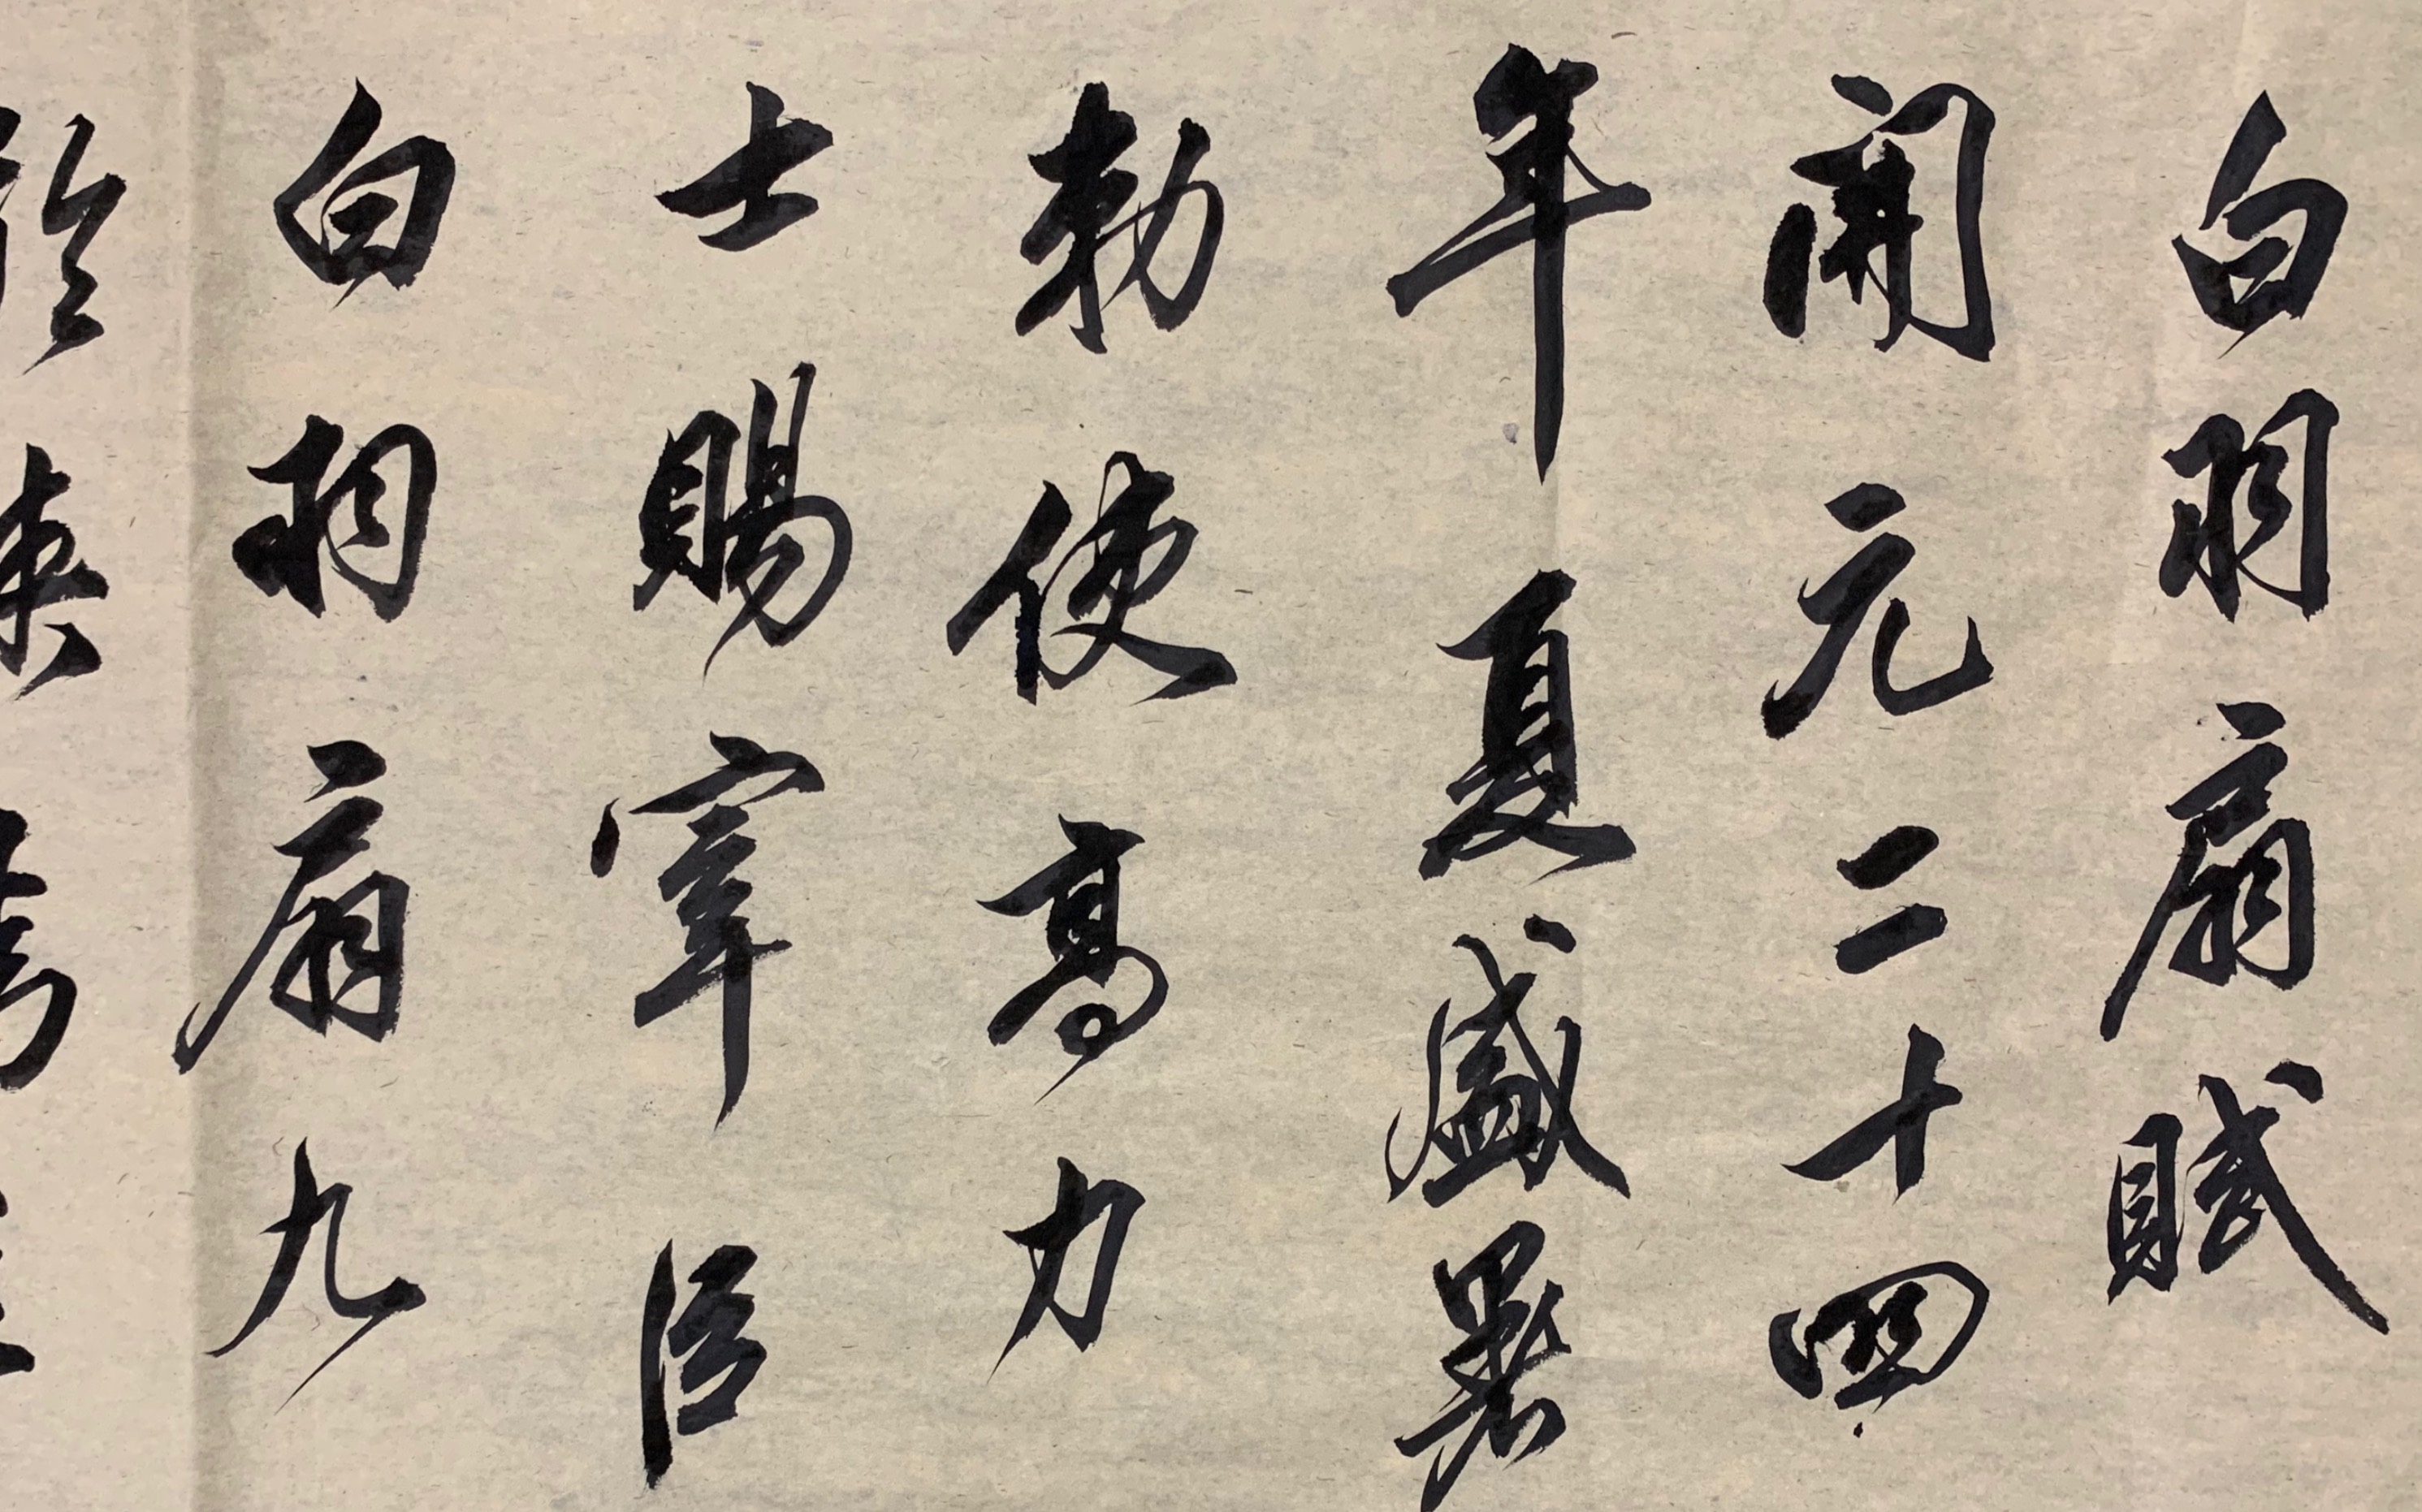 白羽扇賦
開元二十四
年夏盛暑
勅使高力
士賜宰臣
白羽扇九